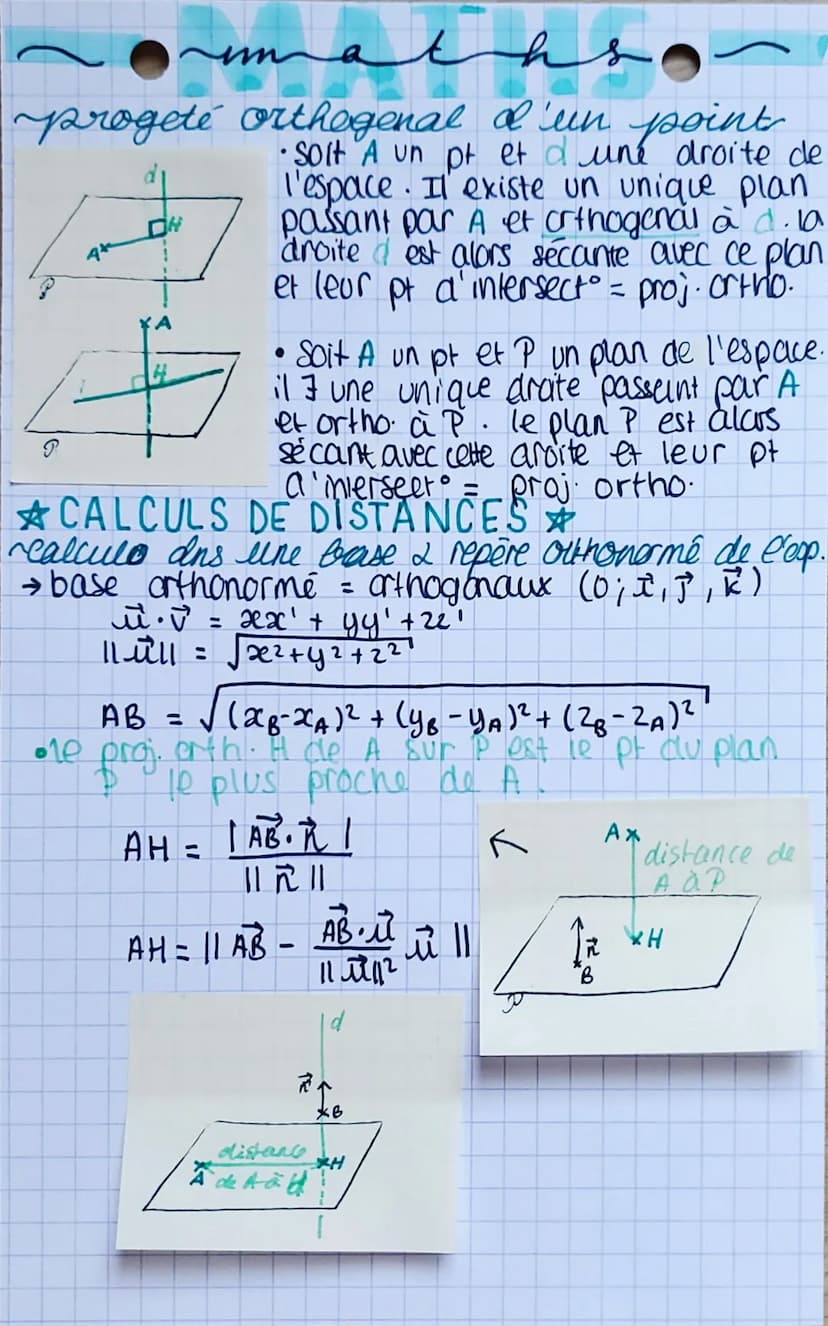 MATHS
maths
progeté orthogonal d'un point
• soit A un pt et d une droite de
l'espace. Il existe un unique plan
passant par A et orthogonal à d. la
droite d est alors sécante avec ce plan
et leur pt d'intersect° = proj. ortho.
d
H
A
P
• soit A un pt et P un plan de l'espace.
il ∃ une unique droite passant par A
et ortho. à P. le plan P est alors
sécant avec cette droite et leur pt
d'intersect° = proj. ortho.
A
H
P
☆ CALCULS DE DISTANCES ☆
calculs dns une base & repère orthonormé de l'esp.
→ base orthonormé = orthogonaux (O; i⃗, j⃗, k⃗)
u⃗ · v⃗ = xx' + yy' + zz'
||u⃗|| = √(x² + y² + z²)
AB = √((x_B - x_A)² + (y_B - y_A)² + (z_B - z_A)²)
• le proj. orth. H de A sur P est le pt du plan
P le plus proche de A.
AH = |AB⃗ · n⃗| / ||n⃗||
←
A
distance de
A à P
n⃗
H
B
P
AH = || AB⃗ - (AB⃗ · u⃗ / ||u⃗||²) u⃗ ||
d
n⃗
B
distance
A H
de A à d